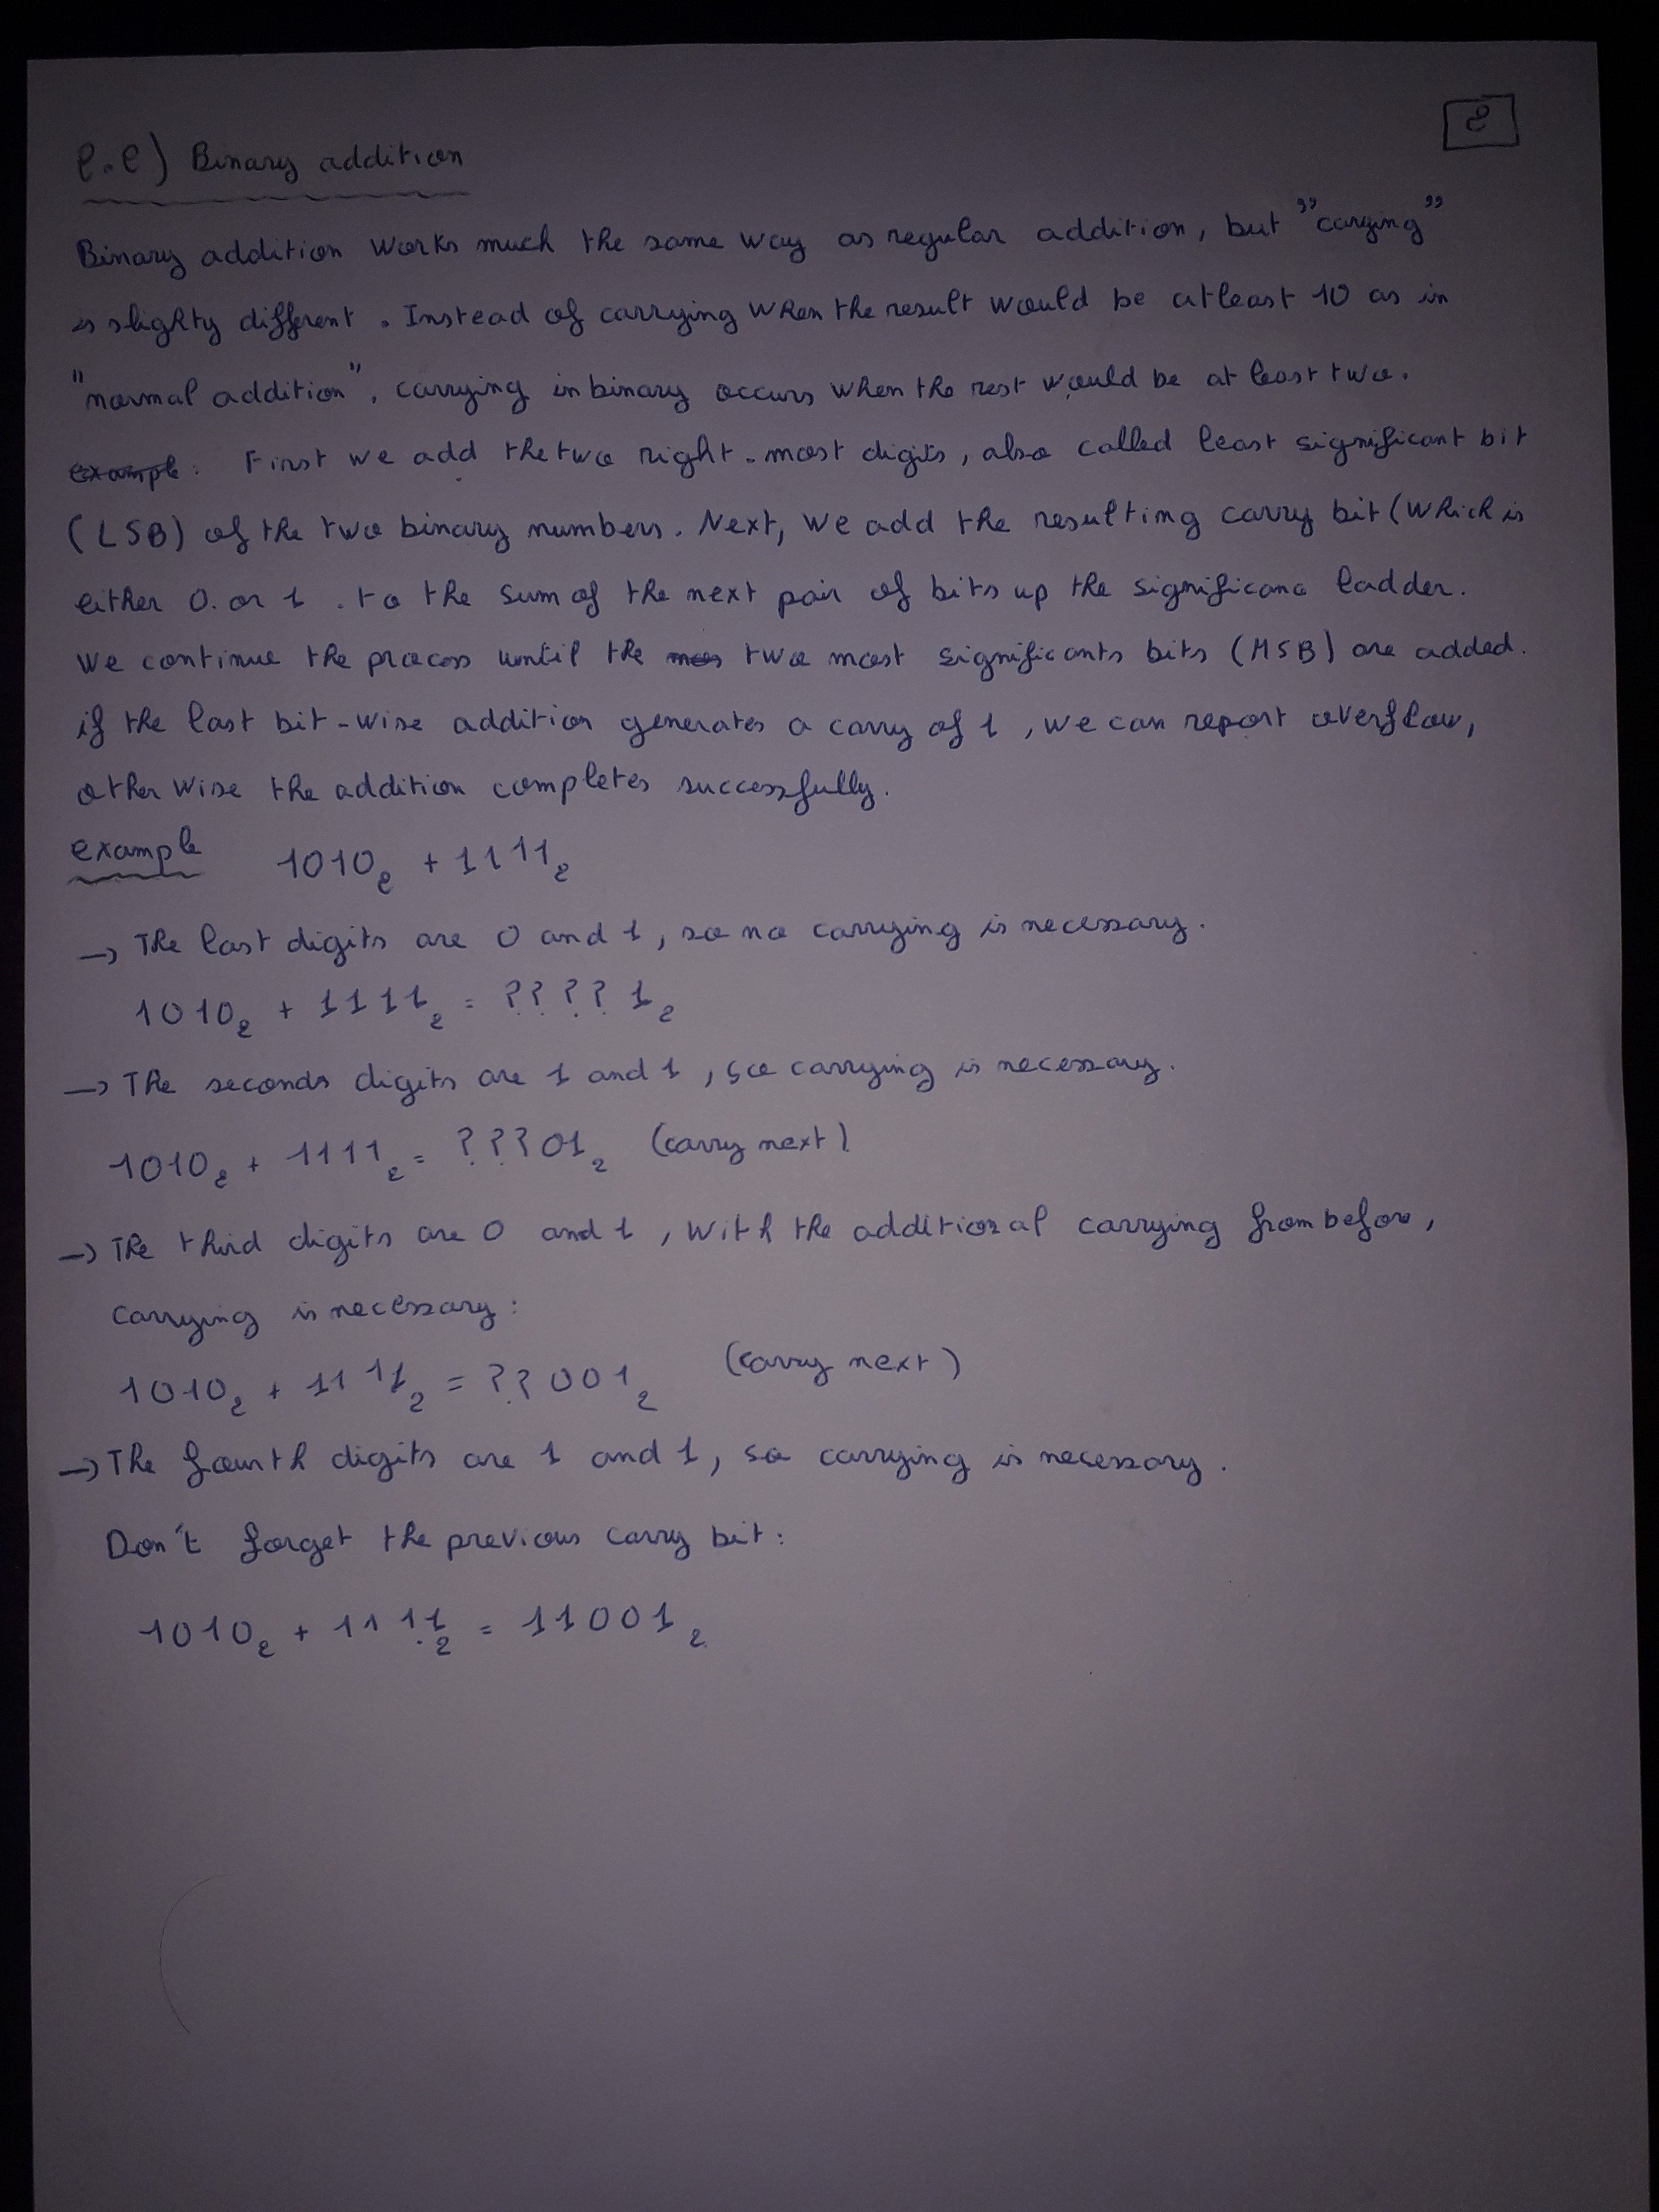 2
2.2) Binary addition
Binary addition works much the same way as regular addition, but "carying"
is slighty different. Instead of carrying when the result would be at least 10 as in
"normal addition", carrying in binary occurs when the rest would be at least two.
example: First we add the two right-most digits, also called least significant bit
(LSB) of the two binary numbers. Next, we add the resulting carry bit (which is
either 0. or 1 . to the sum of the next pair of bits up the significanc ladder.
We continue the process until the two most significants bits (MSB) are added.
if the last bit-wise addition generates a carry of 1, we can report overflow,
otherwise the addition completes successfully.
example 1010₂ + 1111₂
→ The last digits are 0 and 1, so no carrying is necessary.
1010₂ + 1111₂ = ????1₂
→ The seconds digits are 1 and 1, so carrying is necessary.
1010₂ + 1111₂ = ???01₂ (carry next)
→ The third digits are 0 and 1, with the additional carrying from before,
carrying is necessary:
1010₂ + 1111₂ = ??001₂ (carry next)
→ The fourth digits are 1 and 1, so carrying is necessary.
Don't forget the previous carry bit:
1010₂ + 1111₂ = 11001₂